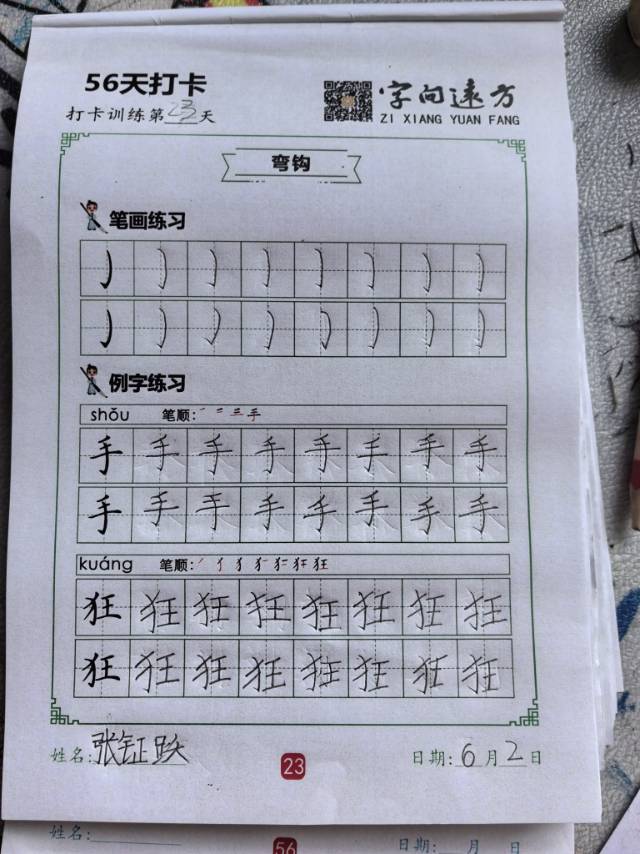 56天打卡
打卡训练第23天
字向远方
ZI XIANG YUAN FANG
弯钩
笔画练习
例字练习
shǒu 笔顺:一 二 三 手
手 手 手 手 手 手 手 手
手 手 手 手 手 手 手 手
kuáng 笔顺:
狂 狂 狂 狂 狂 狂 狂 狂
狂 狂 狂 狂 狂 狂 狂 狂
姓名:张钲跃
23
日期:6月2日
姓名:
56
日期: 月 日